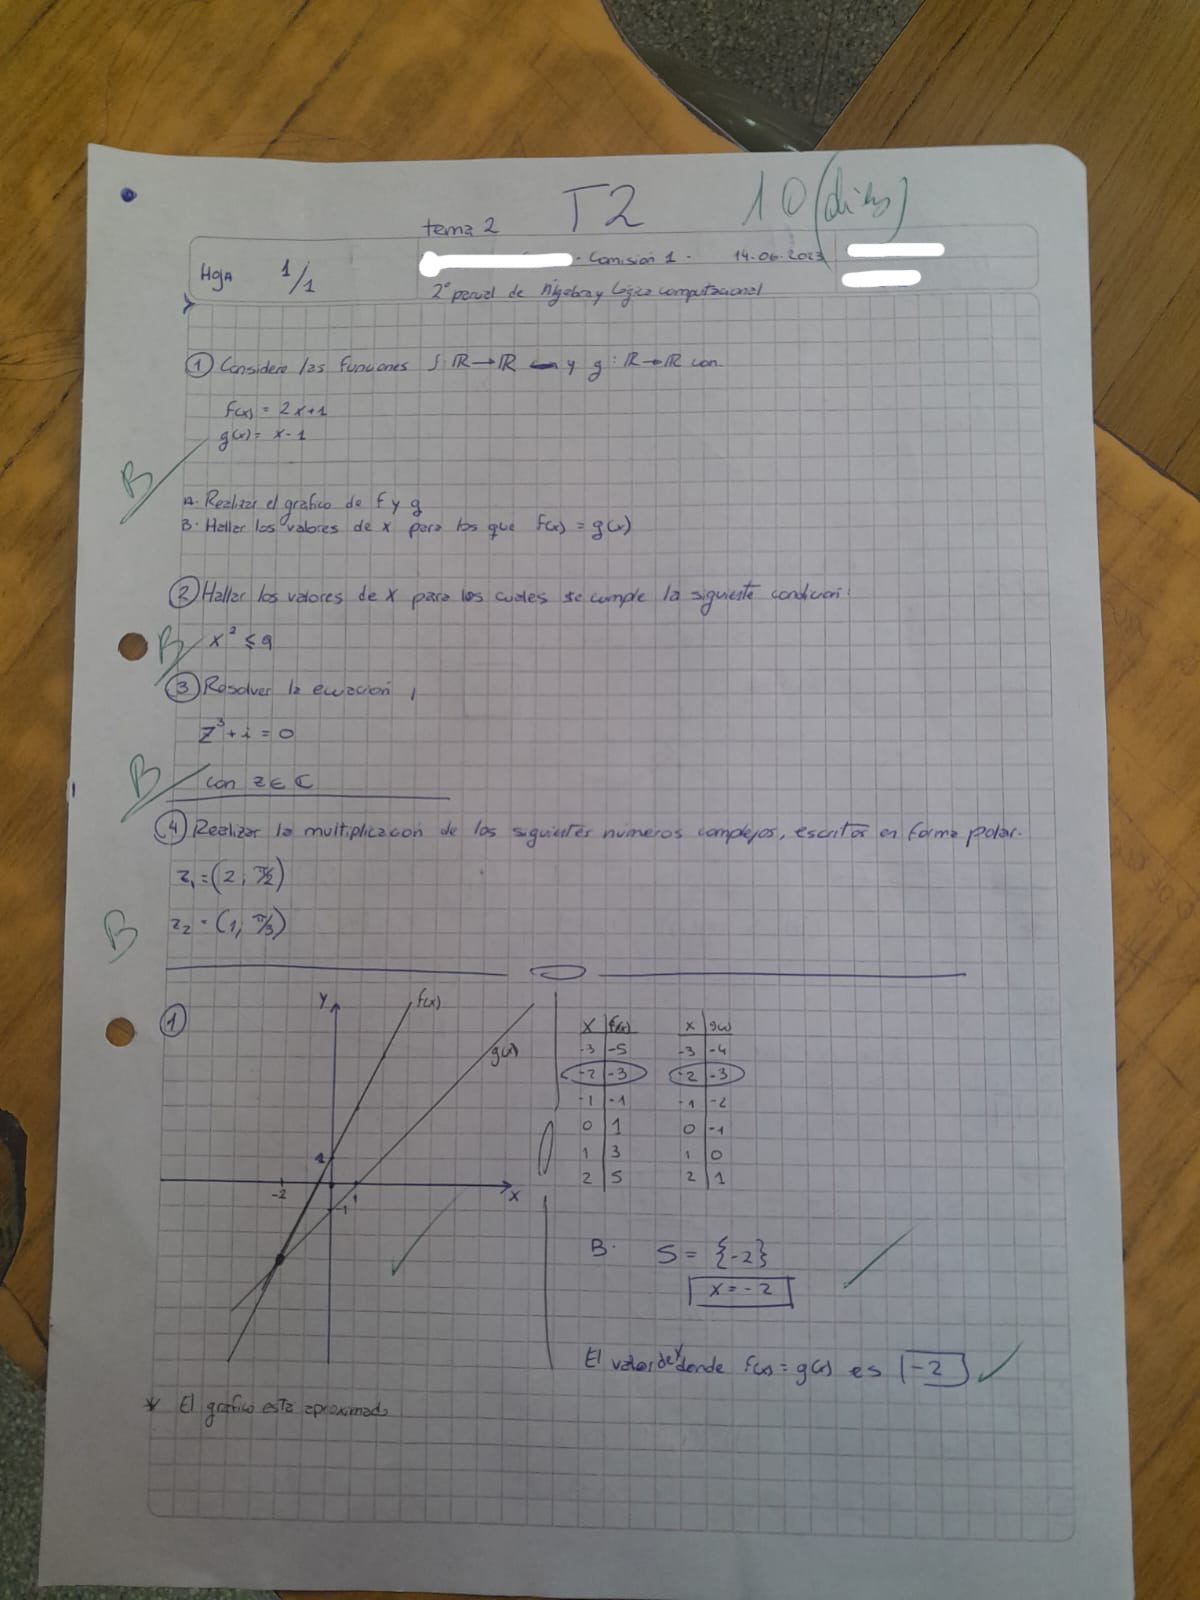 T2
10 (diez)
tema 2
Hoja 1/1
- Comisión 1 - 14-06-2023
2° parcial de Álgebra y Lógica computacional
① Considere las funciones f: ℝ→ℝ y g: ℝ→ℝ con.
f(x) = 2x+1
g(x) = x-1
B
A. Realizar el gráfico de f y g
B. Hallar los valores de x para los que f(x) = g(x)
② Hallar los valores de x para los cuales se cumple la siguiente condición:
B
x² ≤ 9
③ Resolver la ecuación,
z³ + i = 0
B
con z ∈ ℂ
④ Realizar la multiplicación de los siguientes números complejos, escritos en forma polar.
z₁ = (2; π/2)
z₂ = (1; π/3)
B
①
y
f(x)
g(x)
1
-2
1
-1
x
x | f(x)
-3 | -5
-2 | -3
-1 | -1
0 | 1
1 | 3
2 | 5
x | g(x)
-3 | -4
-2 | -3
-1 | -2
0 | -1
1 | 0
2 | 1
B. S = {-2}
x = -2
El valor de x donde f(x) = g(x) es -2
* El gráfico esta aproximado